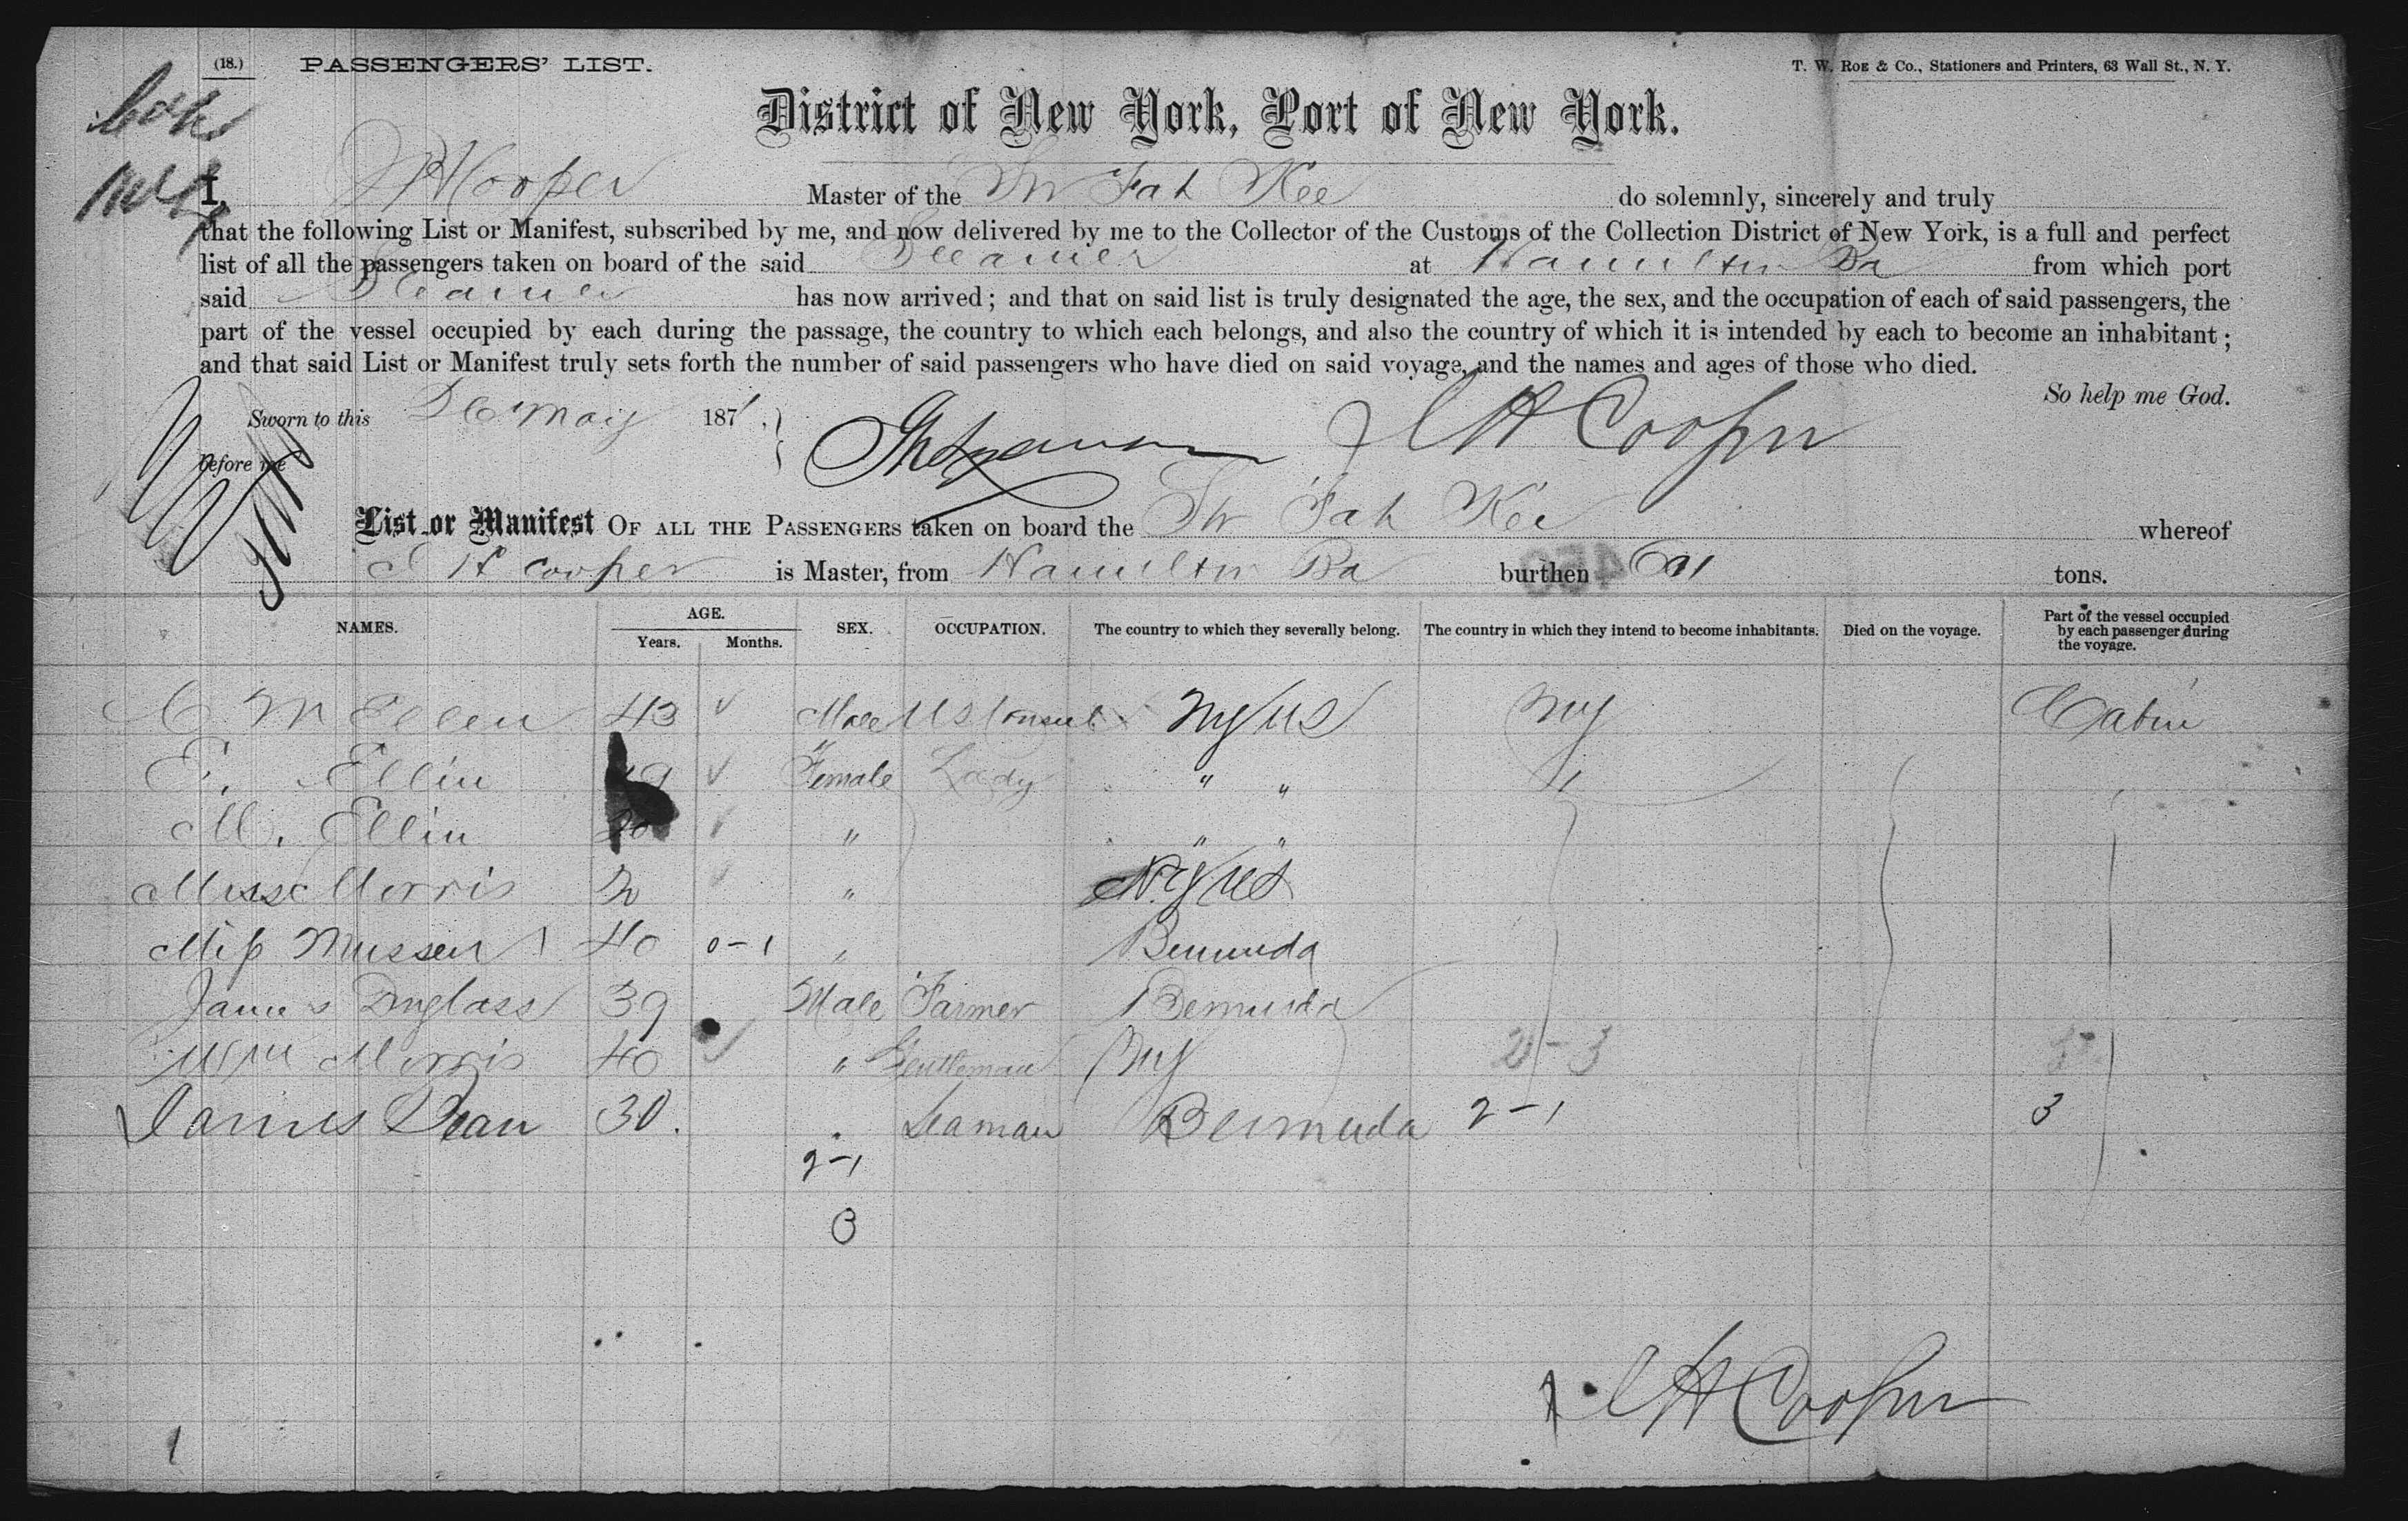 (18.) PASSENGERS' LIST. T. W. ROE & Co., Stationers and Printers, 63 Wall St., N. Y.
District of New York, Port of New York.
I, Cooper Master of the Str Fah Kee do solemnly, sincerely and truly
that the following List or Manifest, subscribed by me, and now delivered by me to the Collector of the Customs of the Collection District of New York, is a full and perfect
list of all the passengers taken on board of the said Steamer at Hamilton Ba from which port
said Steamer has now arrived; and that on said list is truly designated the age, the sex, and the occupation of each of said passengers, the
part of the vessel occupied by each during the passage, the country to which each belongs, and also the country of which it is intended by each to become an inhabitant;
and that said List or Manifest truly sets forth the number of said passengers who have died on said voyage, and the names and ages of those who died.
So help me God.
Sworn to this 26 May 1871, H Cooper
before me
List or Manifest OF ALL THE PASSENGERS taken on board the Str Fah Kee whereof
H Cooper is Master, from Hamilton Ba burthen 601 tons.
NAMES. AGE. Years. Months. SEX. OCCUPATION. The country to which they severally belong. The country in which they intend to become inhabitants. Died on the voyage. Part of the vessel occupied by each passenger during the voyage.
C M Ellen 43 Male US Consul NY US NY Cabin
E. Ellin Female Lady " " "
M. Ellin 20 " " "
Miss Morris 2 " N.Y US
Miss Musson 40 0-1 " Bermuda
James Duglass 39 Male Farmer Bermuda
Wm Morris 40 " Gentleman NY 2-3 5
James Dean 30. Seaman Bermuda 2-1 3
2-1
3
H Cooper
1